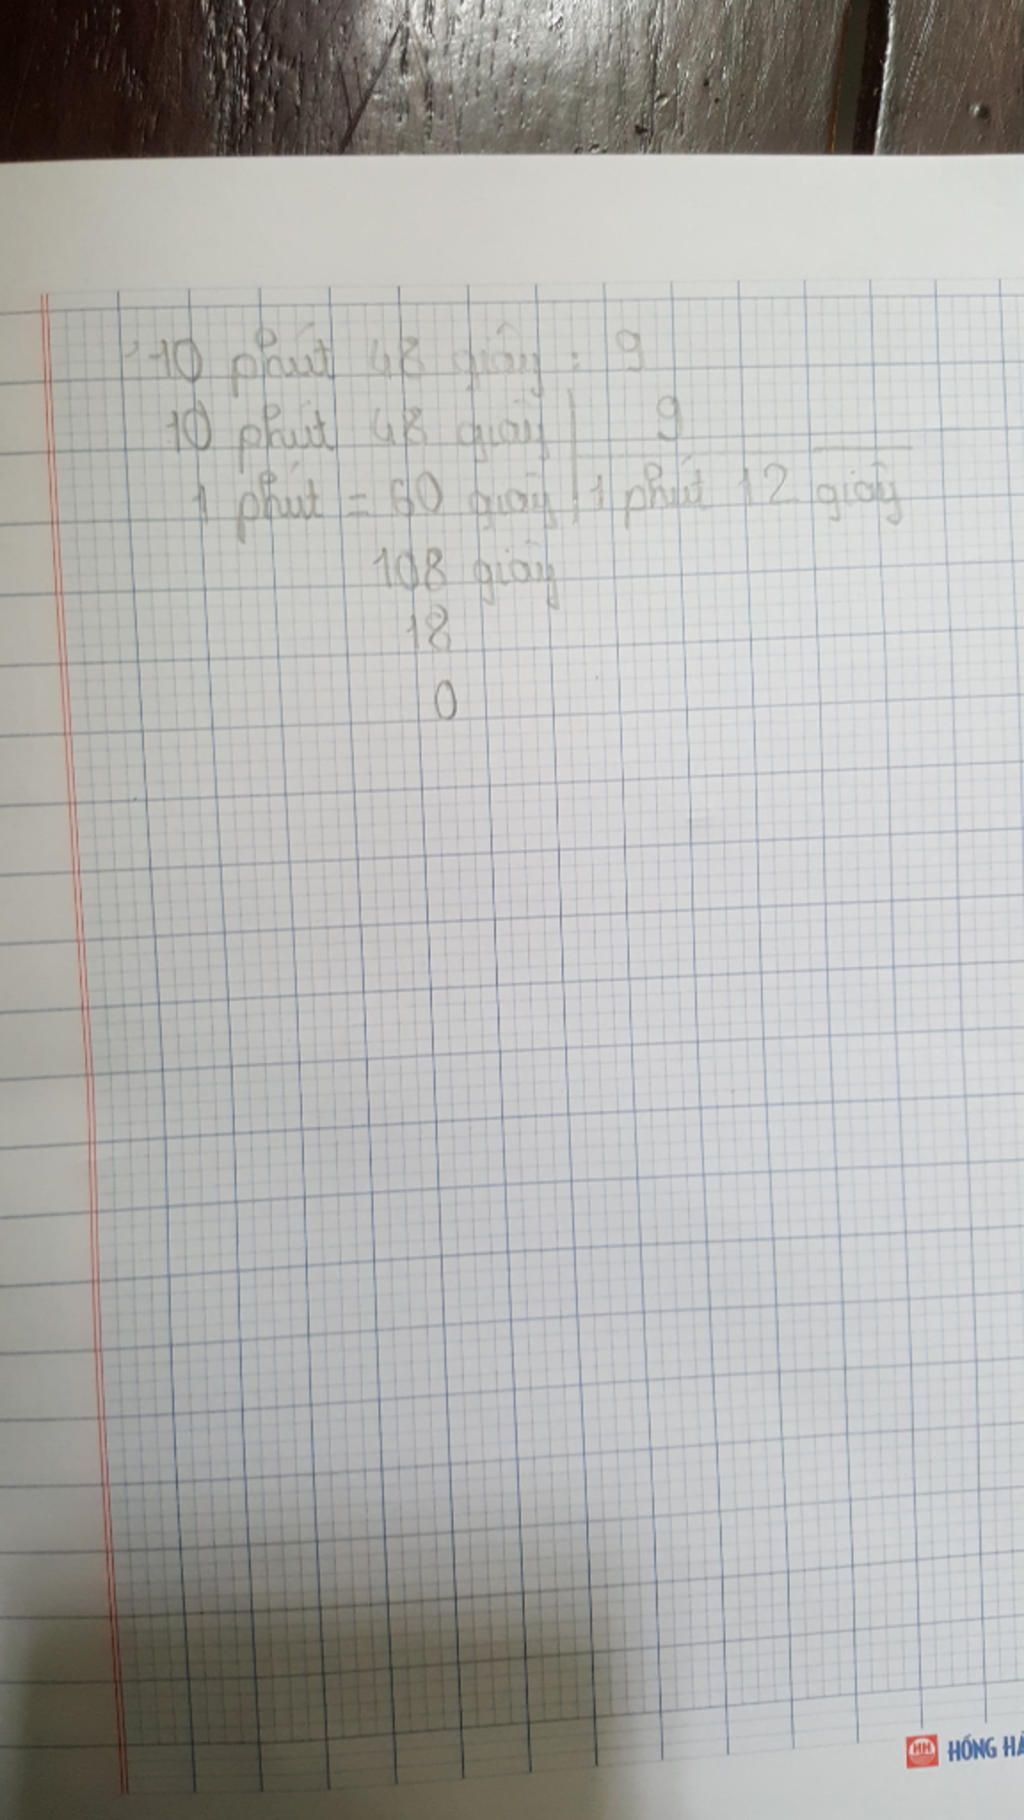 10 phút 48 giây : 9
10 phút 48 giây 9
1 phút = 60 giây 1 phút 12 giây
108 giây
18
0
HH HỒNG HÀ